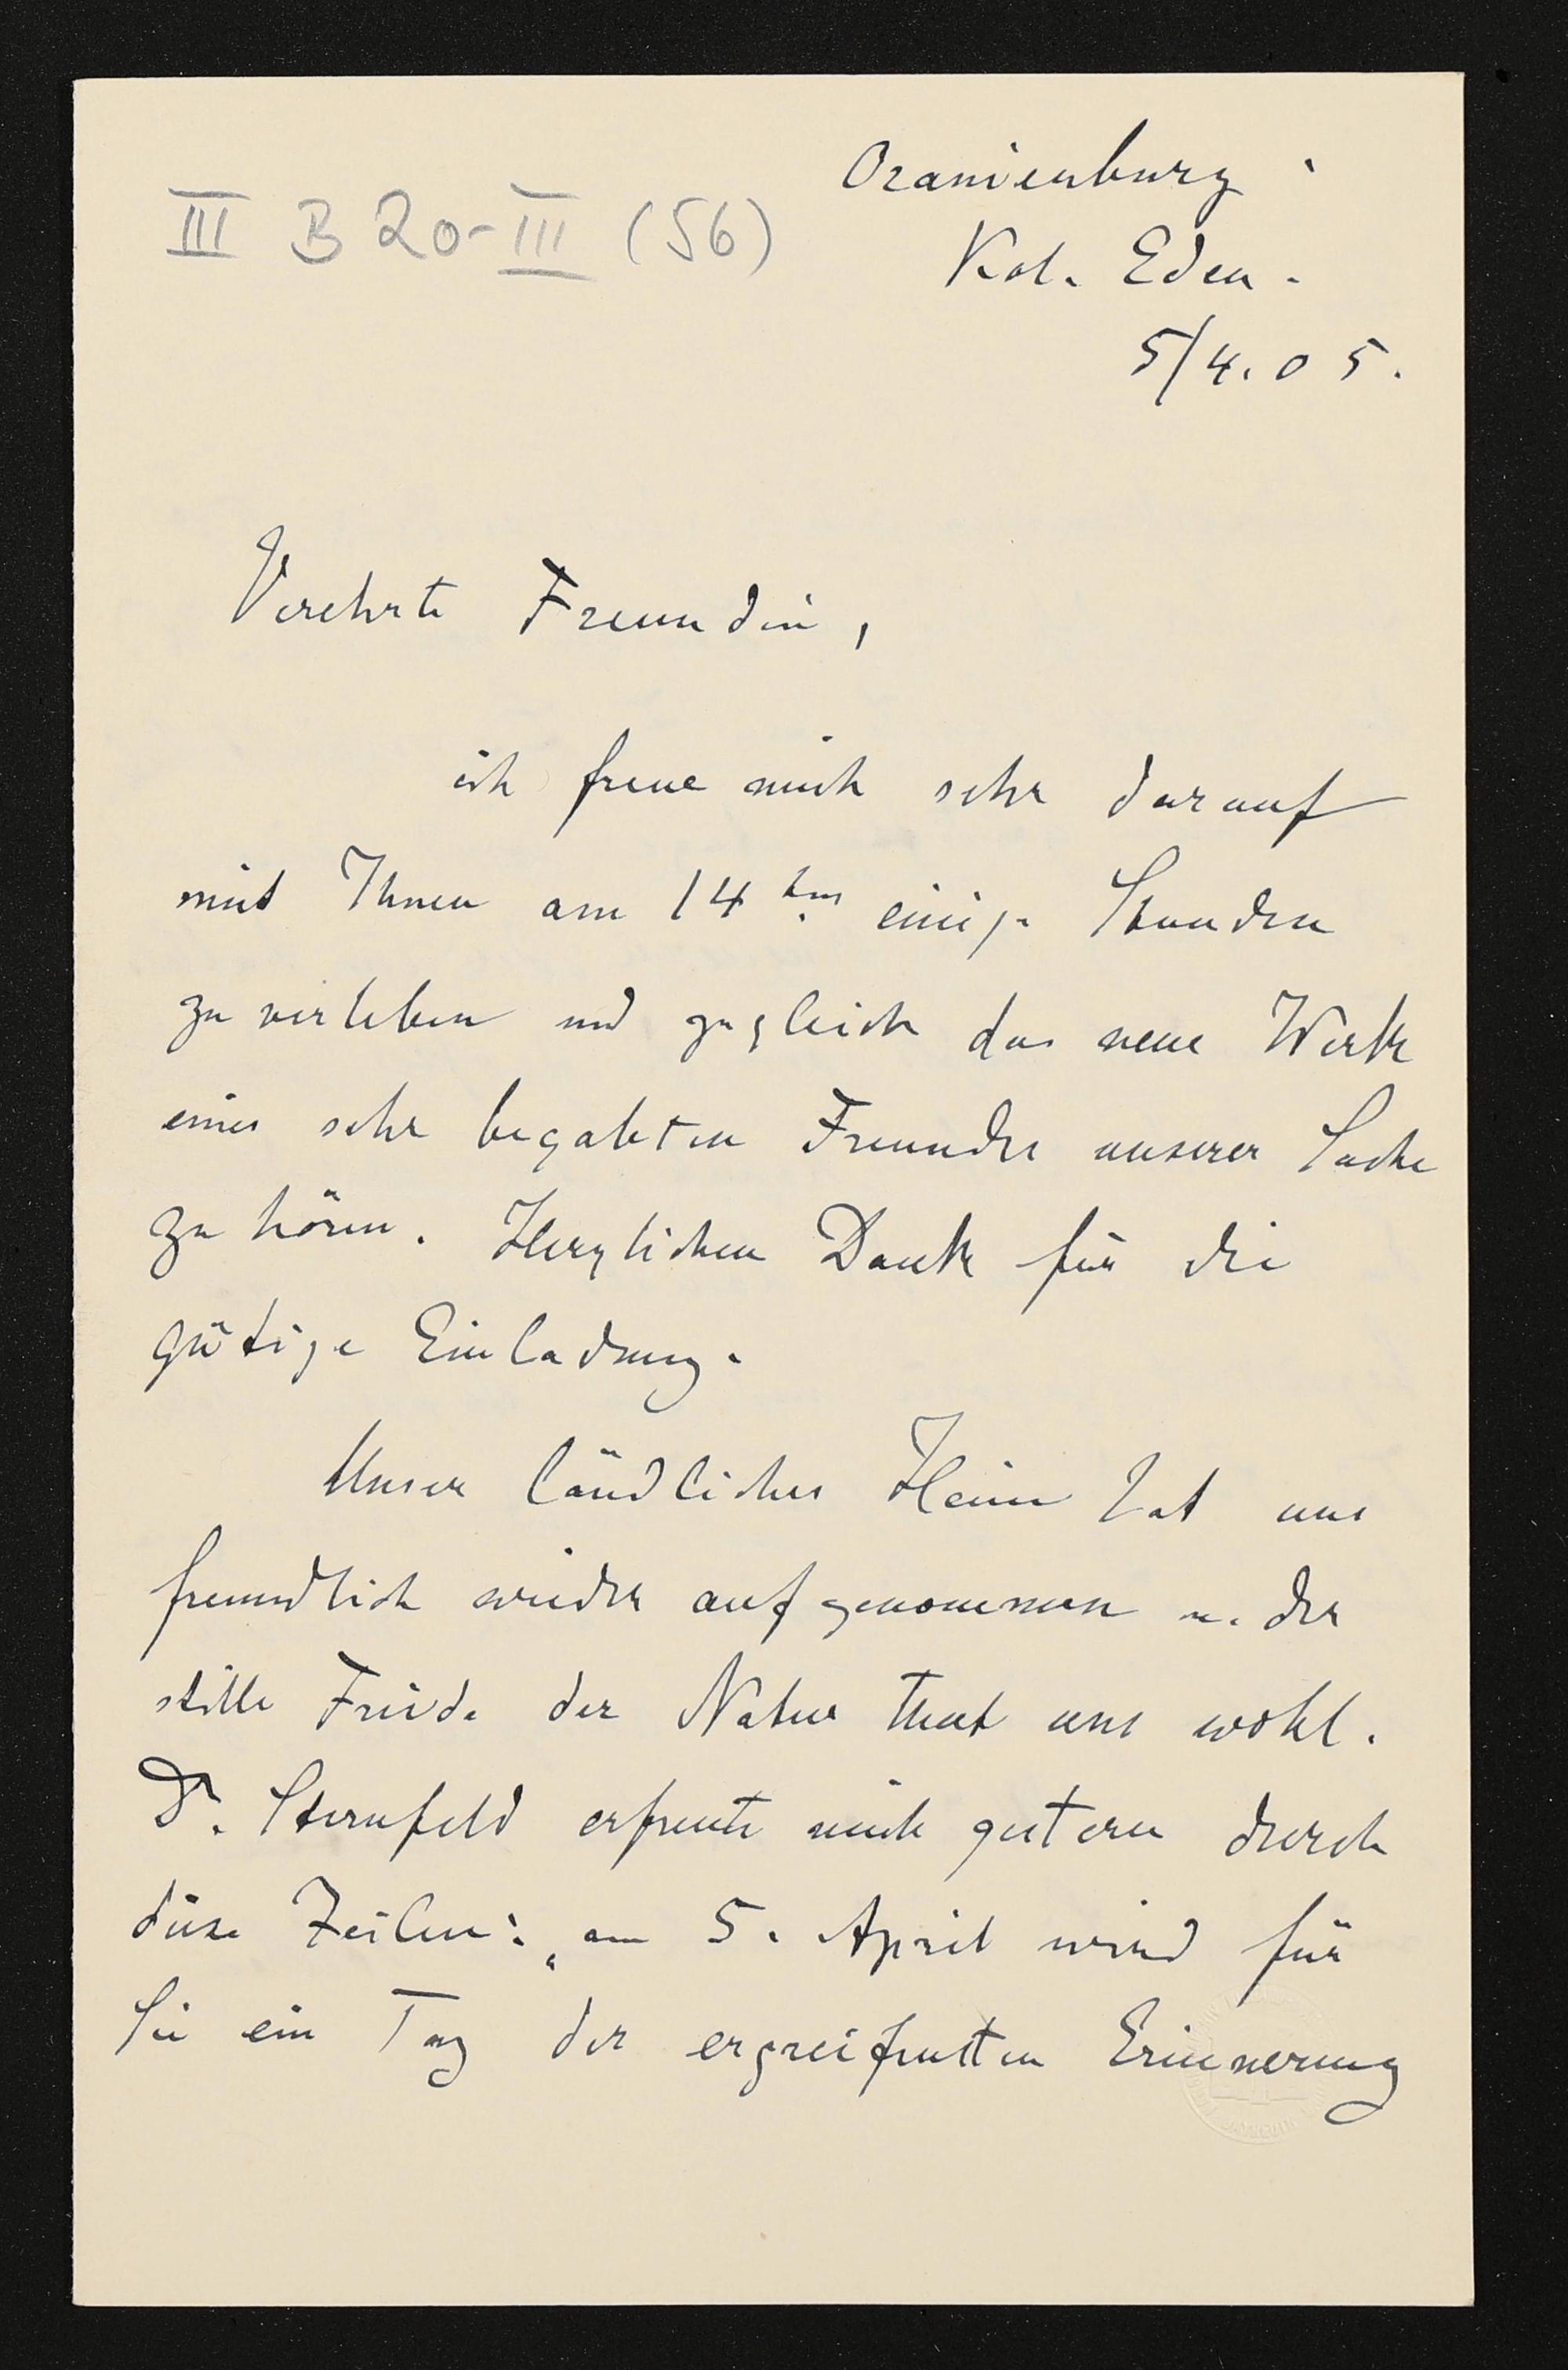 III B 20-III (56)
Oranienburg.
Kol. Eden.
5/4.05.
Verehrte Freundin,
ich freue mich sehr darauf
mit Ihnen am 14 ten einige Stunden
zu verleben und zugleich das neue Werk
eines sehr begabten Freundes unserer Sache
zu hören. Herzlichen Dank für die
gütige Einladung.
Unser ländliches Heim hat uns
freundlich wieder aufgenommen u. der
stille Friede der Natur that uns wohl.
Dr. Sternfeld erfreute mich gestern durch
diese Zeilen: „am 5. April wird für
Sie ein Tag der ergreifendsten Erinnerung